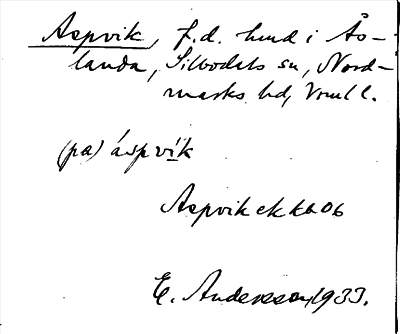 Aspvik, f.d. hmd i Ås-
landa, Silbodals sn, Nord-
marks hd, Vrml l.
(pa) áspvik
Aspvik ek kb 06
E. Andersson, 1933.